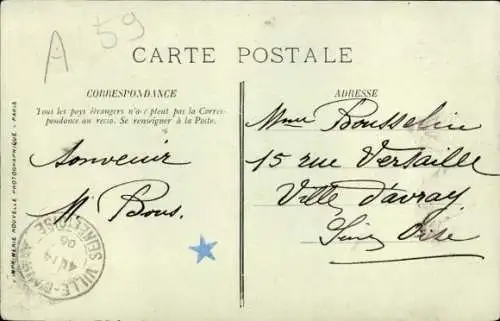 A 59
CARTE POSTALE
CORRESPONDANCE
Tous les pays étrangers n'acceptent pas la Corres-
pondance au recto. Se renseigner à la Poste.
ADRESSE
Souvenir
Bous.
Mme Bousselin
15 rue Versaille
Ville d'avray
Seine Oise
IMPRIMERIE NOUVELLE PHOTOGRAPHIQUE - PARIS
VILLE-D'AVRAY